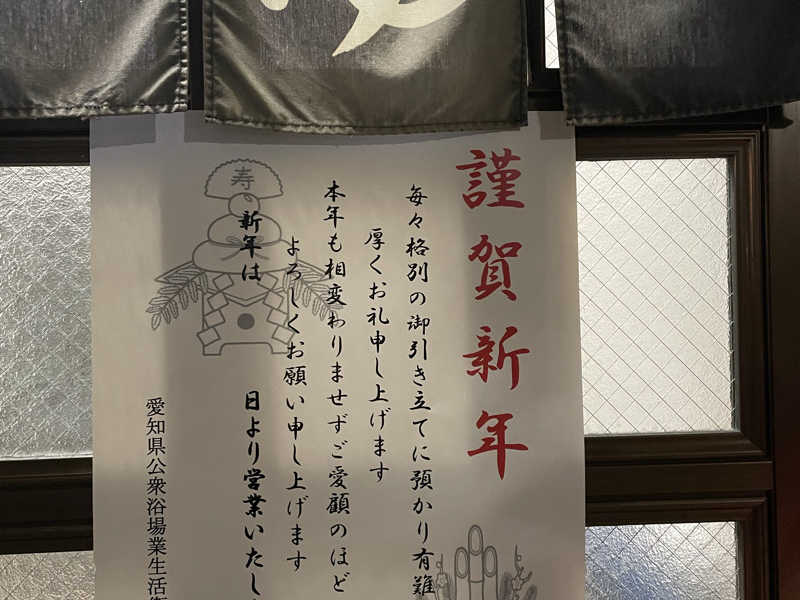 ゆ
謹賀新年
毎々格別の御引き立てに預かり有難
厚くお礼申し上げます
本年も相変わりませずご愛顧のほど
よろしくお願い申し上げます
寿
新年は 日より営業いたし
愛知県公衆浴場業生活衛